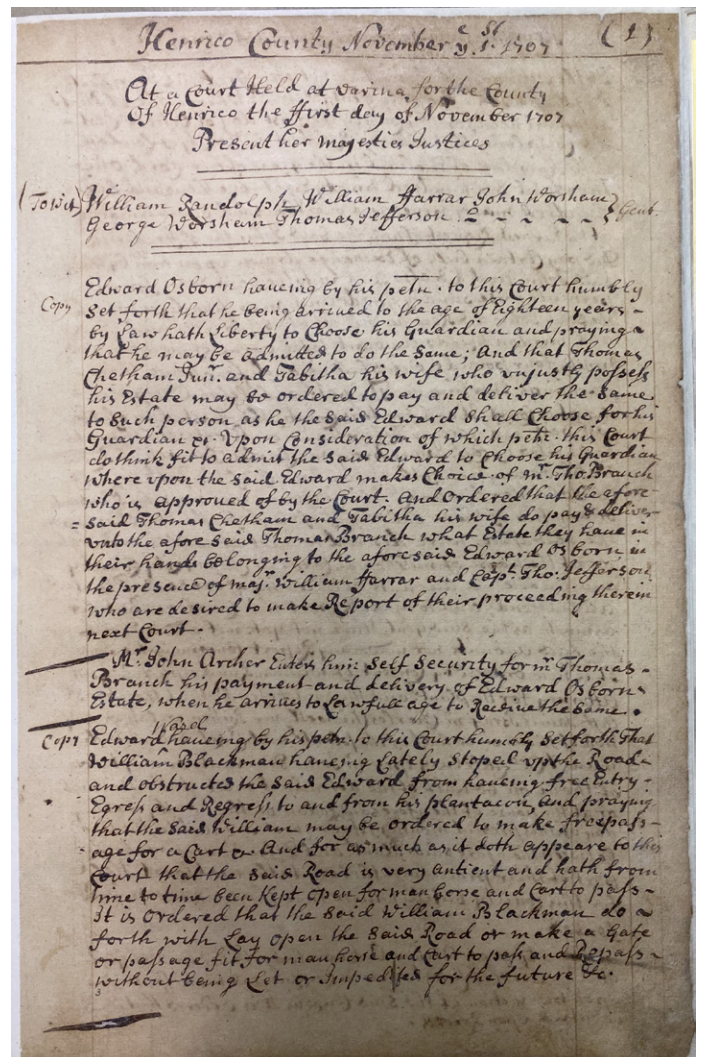 Henrico County November yᵉ 1.ˢᵗ 1707 (1)
At a Court Held at varina for the County
Of Henrico the ffirst day of November 1707
Present her majesties Justices
(To wit) William Randolph, William ffarrar John Worsham
George Worsham Thomas Jefferson Gent.
Edward Osborn haueing by his petn. to this Court humbly
Copy Set forth that he being arriued to the age of Eighteen years -
by Law hath Liberty to Choose his Guardian and praying
that he may be admitted to do the Same; And that Thomas
Chetham Junʳ. and Tabitha his wife who unjustly possess
his Estate may be ordered to pay and deliver the Same
to Such person as he the Said Edward Shall Choose for his
Guardian &. Vpon Consideration of which petn. this Court
do think fit to admit the Said Edward to Choose his Guardian
where vpon the Said Edward makes Choice of mʳ. Tho. Branch
who is approued of by the Court. And Ordered that the afore
= Said Thomas Chetham and Tabitha his wife do pay & deliver
vnto the afore Said Thomas Branch what Estate they haue in
their hands belonging to the aforesaid Edward Osborn in
the presence of majʳ. William ffarrar and Capᵗ. Tho. Jefferson
who are desired to make Report of their proceeding therein
next Court.
Mʳ. John Archer Enters him Self Security for mʳ Thomas -
Branch his payment and delivery of Edward Osborns
Estate, when he arriues to Lawfull age to Receiue the Same.
Copy Edward haueing by his petn. to this Court humbly Set forth That
William Blackman haueing Lately Stoped vp the Road
and obstructed the Said Edward from haueing free Entry -
Egress and Regress to and from his plantacon, And praying
that the Said William may be ordered to make free pass -
age for a Cart &. And for as much as it doth appeare to this
Court that the Said Road is very antient and hath from
time to time been Kept open for man horse and Cart to pass -
It is Ordered that the Said William Blackman do
forth with Lay open the Said Road or make a Gate
or passage fit for man horse and Cart to pass and Repass -
without being Let or Impedited for the future &c.